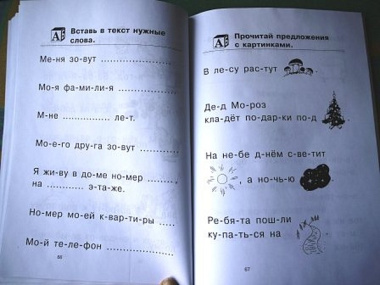 Вставь в текст нужные
слова.
Ме-ня зо-вут ..................
Мо-я фа-ми-ли-я ..................
М-не .................. ле-т.
Мо-е-го дру-га зо-вут ..................
Я жи-ву в до-ме но-мер ..........
на .............. э-та-же.
Но-мер мо-ей к-вар-ти-ры ......
Мо-й те-ле-фон ..................
Прочитай предложения
с картинками.
В ле-су рас-тут
Де-д Мо-роз
кла-дёт по-дар-ки по-д
На не-бе д-нём с-ве-тит
, а но-чь-ю
Ре-бя-та пош-ли
ку-па-ть-ся на
67